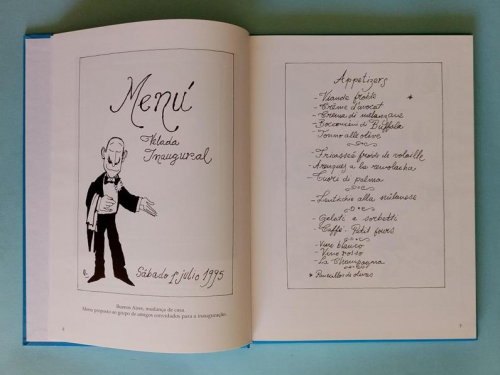 Menú
Velada
Inaugural
Sábado 1º julio 1995
Buenos Aires, mudança de casa.
Menu proposto ao grupo de amigos convidados para a inauguração.
Appetizers
- Viande froide
- Crème d'avocat
- Crema di melanzane
- Bocconcini di Buffala
- Tonno alle olive
- Fricassée froide de volaille
- Arenques a la remolacha
- Cuori di palma
- Lenticchie alla milanese
- Gelati e sorbetti
- Caffè - Petit fours
- Vino bianco
- Vino rosso
- La Champagna